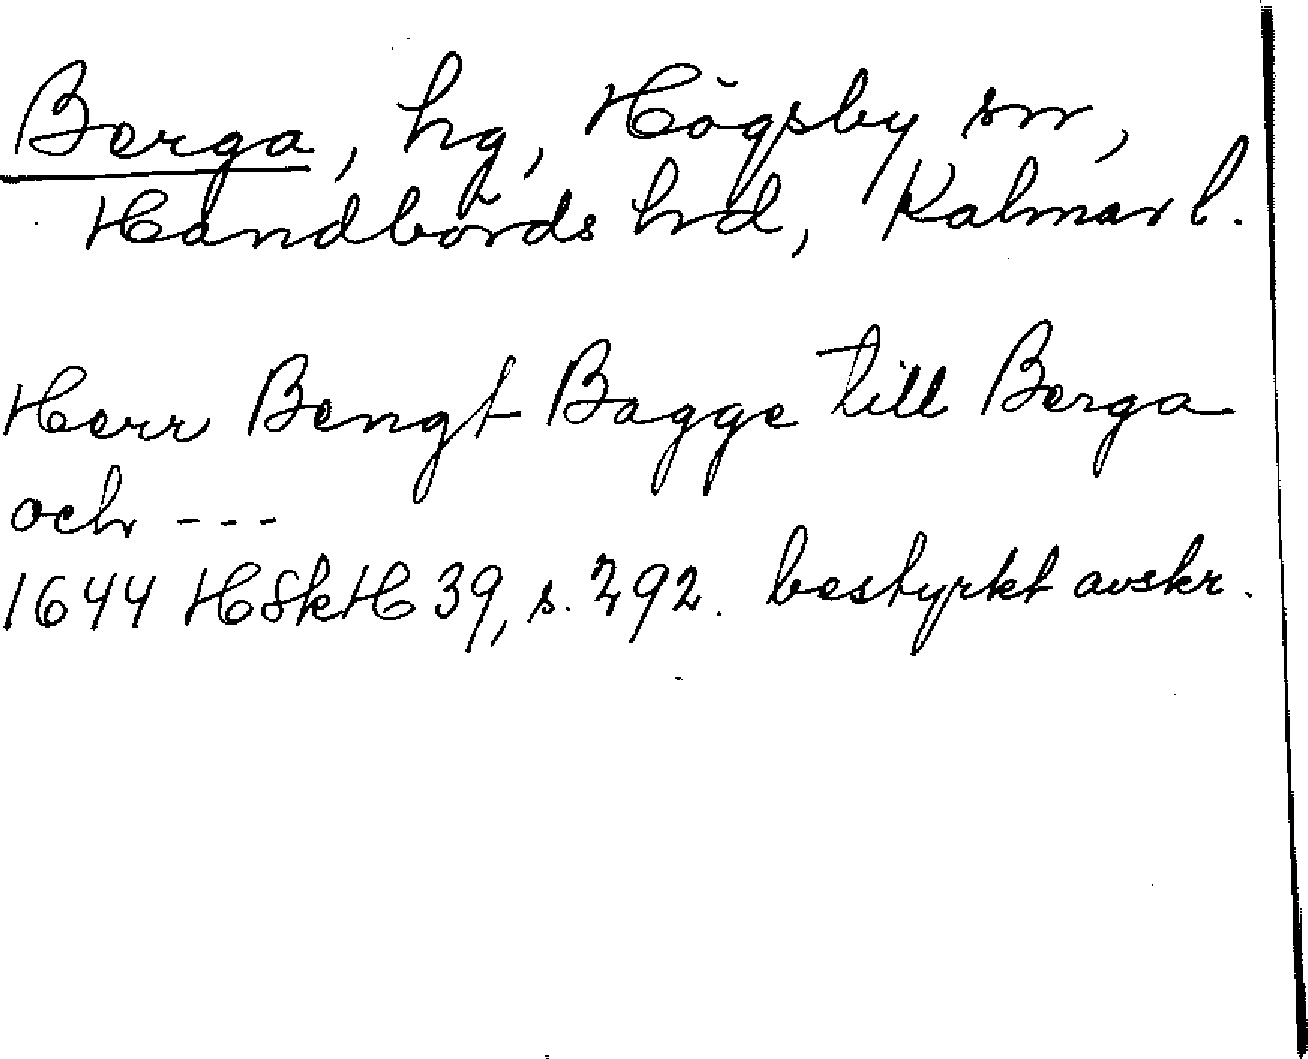 Berga, hg, Högsby sn,
Handbörds hd, Kalmar l.
Herr Bengt Bagge till Berga
och ---
1644 HSkH 39, s. 292. bestyrkt avskr.